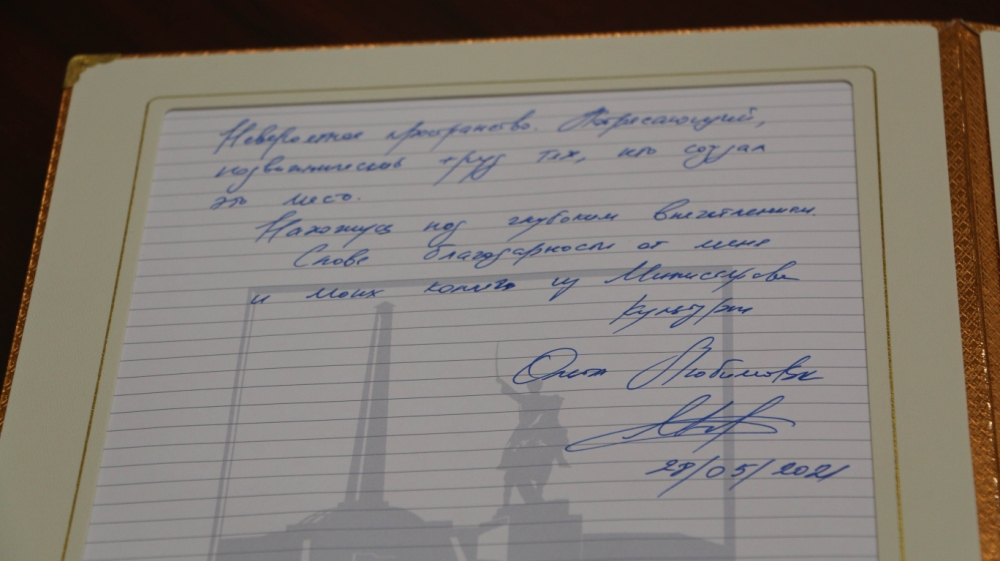 Невероятное пространство. Потрясающий,
подвижнический труд тех, кто создал
это место.
Нахожусь под глубоким впечатлением.
Слова благодарности от меня
и моих коллег из Министерства
культуры
Ольга Любимова
28/05/2021